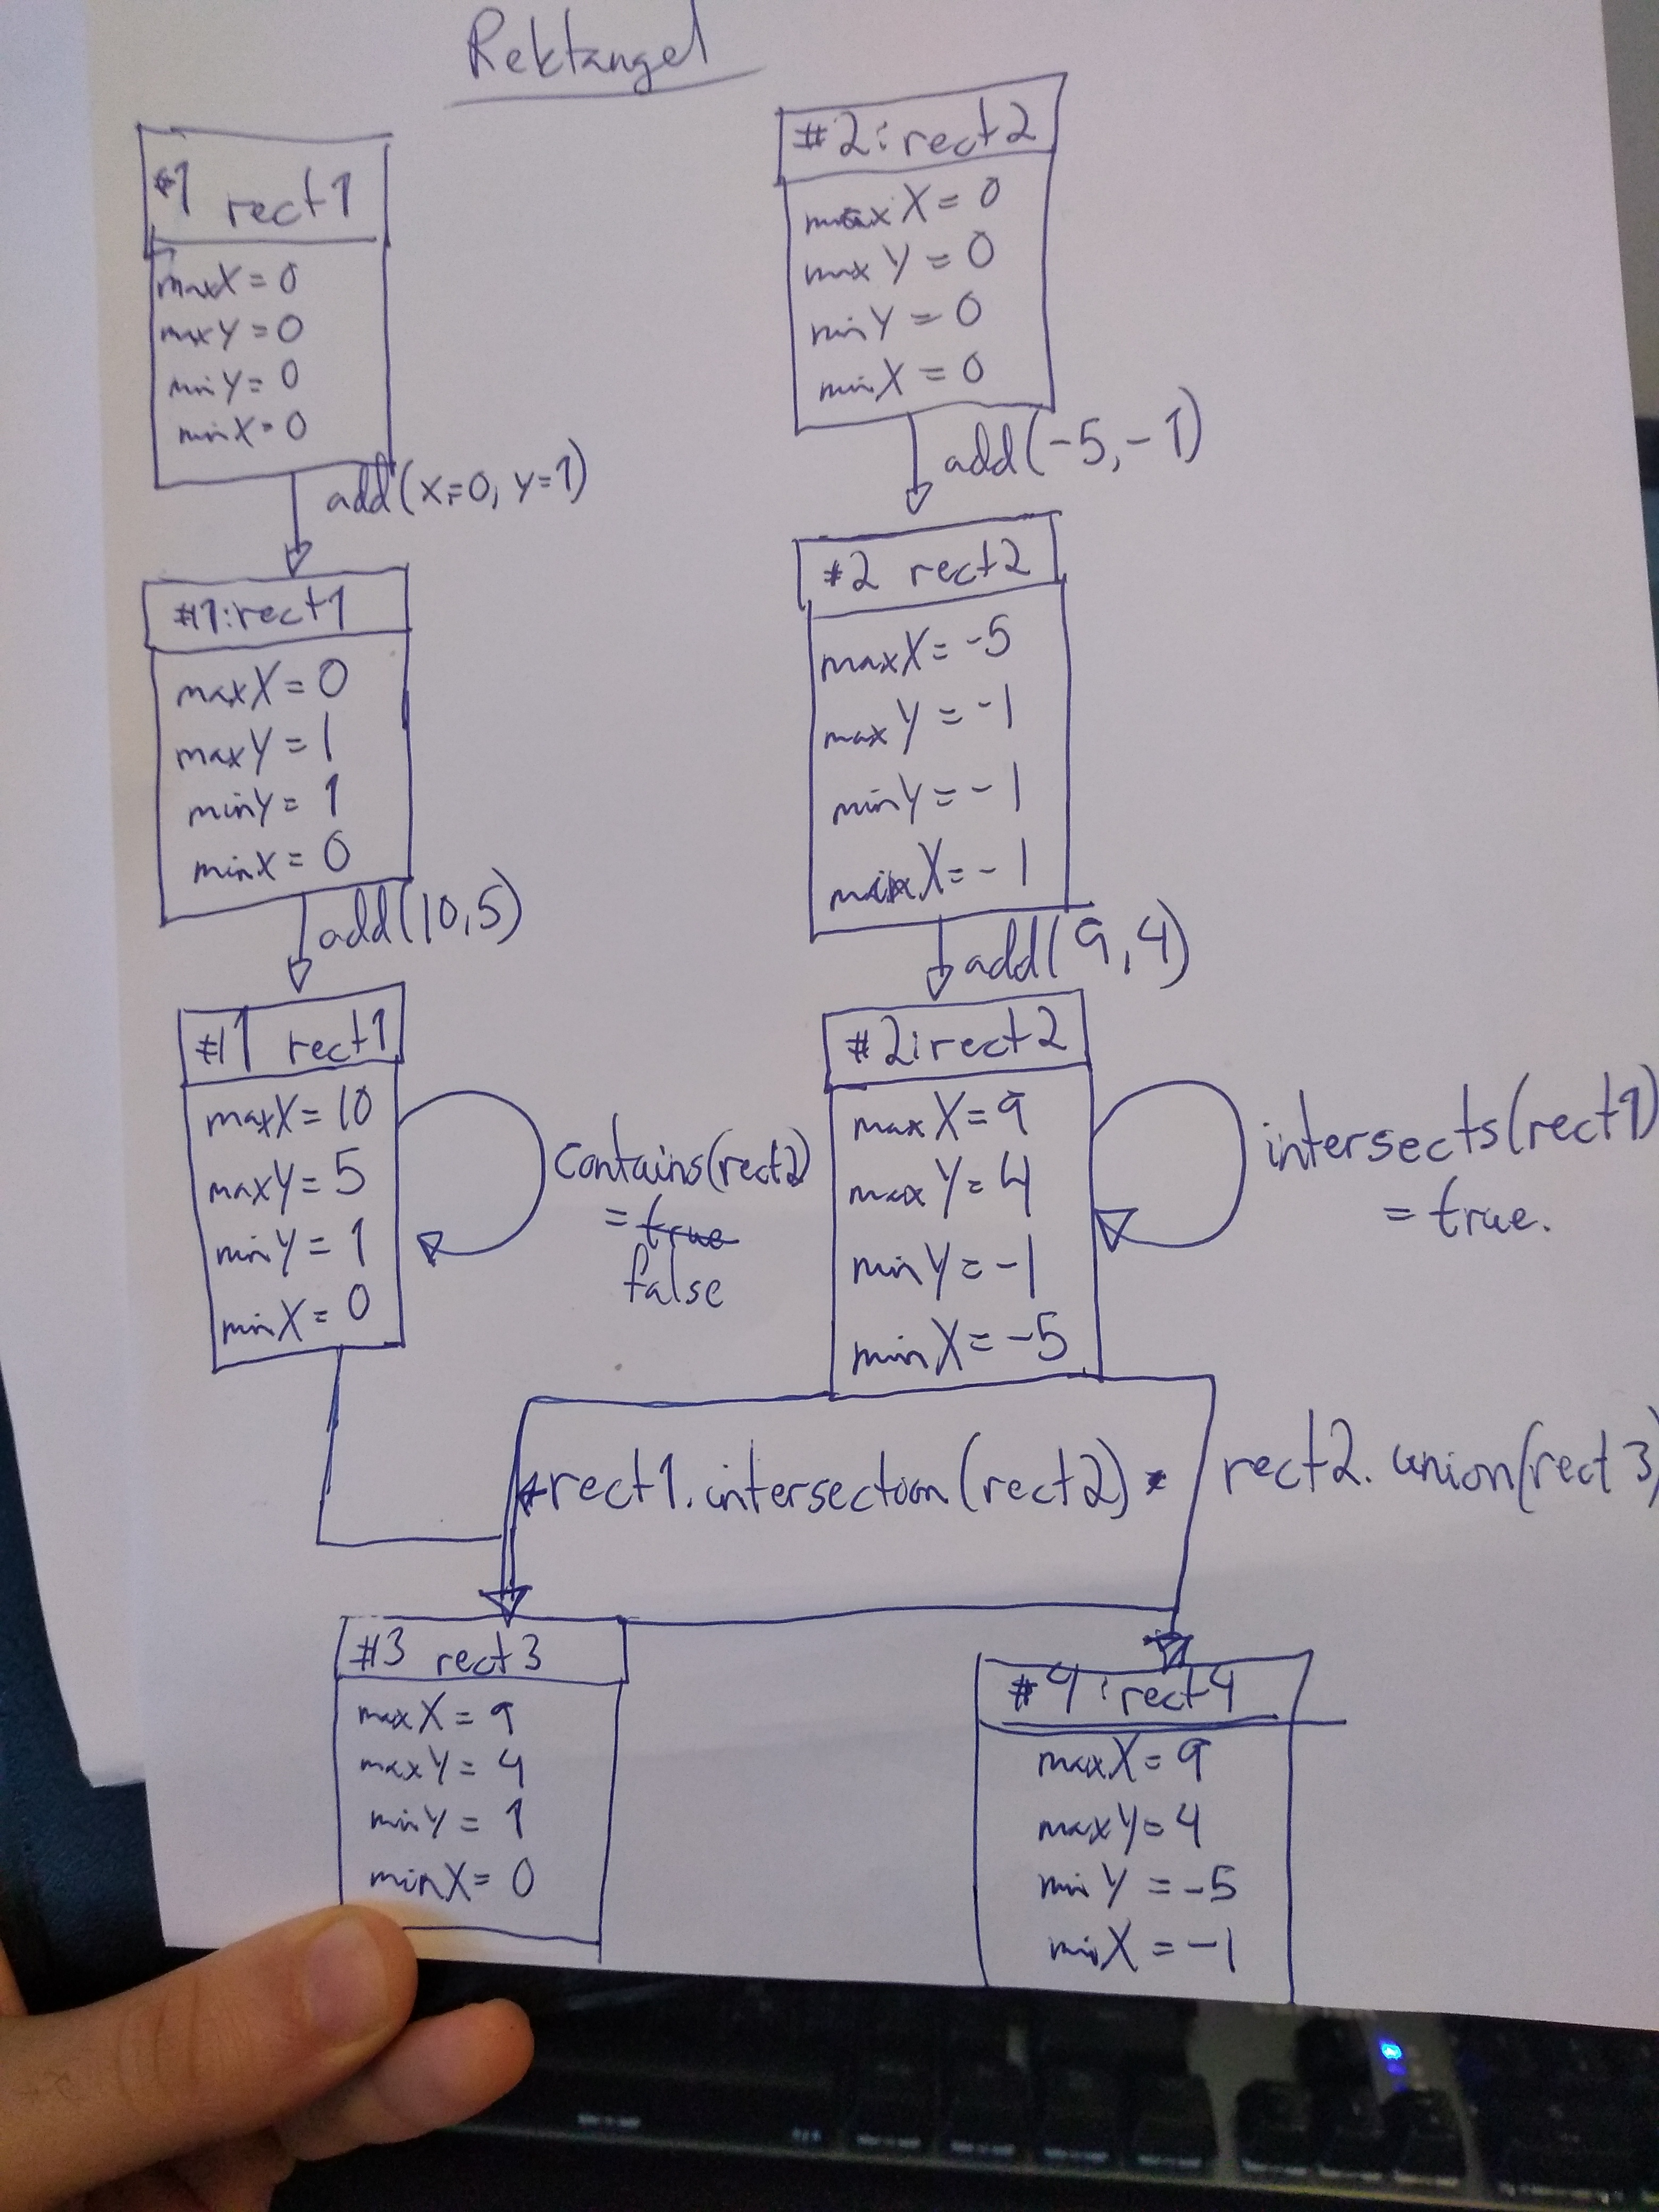 Rektangel
#1 rect1
maxX = 0
maxY = 0
minY = 0
minX = 0
add(x=0, y=1)
#1:rect1
maxX = 0
maxY = 1
minY = 1
minX = 0
add(10,5)
#1 rect1
maxX = 10
maxY = 5
minY = 1
minX = 0
contains(rect2)
= true
false
#2: rect2
maxX = 0
maxY = 0
minY = 0
minX = 0
add(-5,-1)
#2 rect2
maxX = -5
maxY = -1
minY = -1
X = -1
add(9,4)
#2: rect2
maxX = 9
maxY = 4
minY = -1
minX = -5
intersects(rect1)
= true.
rect1.intersection(rect2)
rect2.union(rect3)
#3 rect3
maxX = 9
maxY = 4
minY = 1
minX = 0
#4: rect4
maxX = 9
maxY = 4
minY = -5
minX = -1